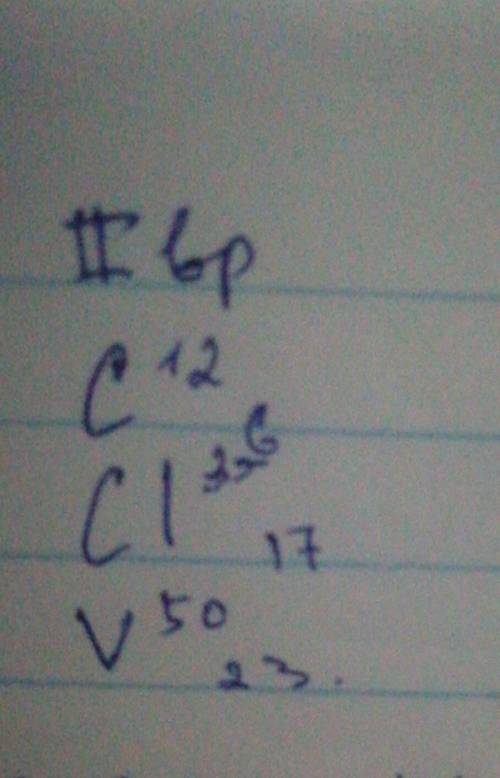 II вр
C 12
Cl 36
17
V 50
23.